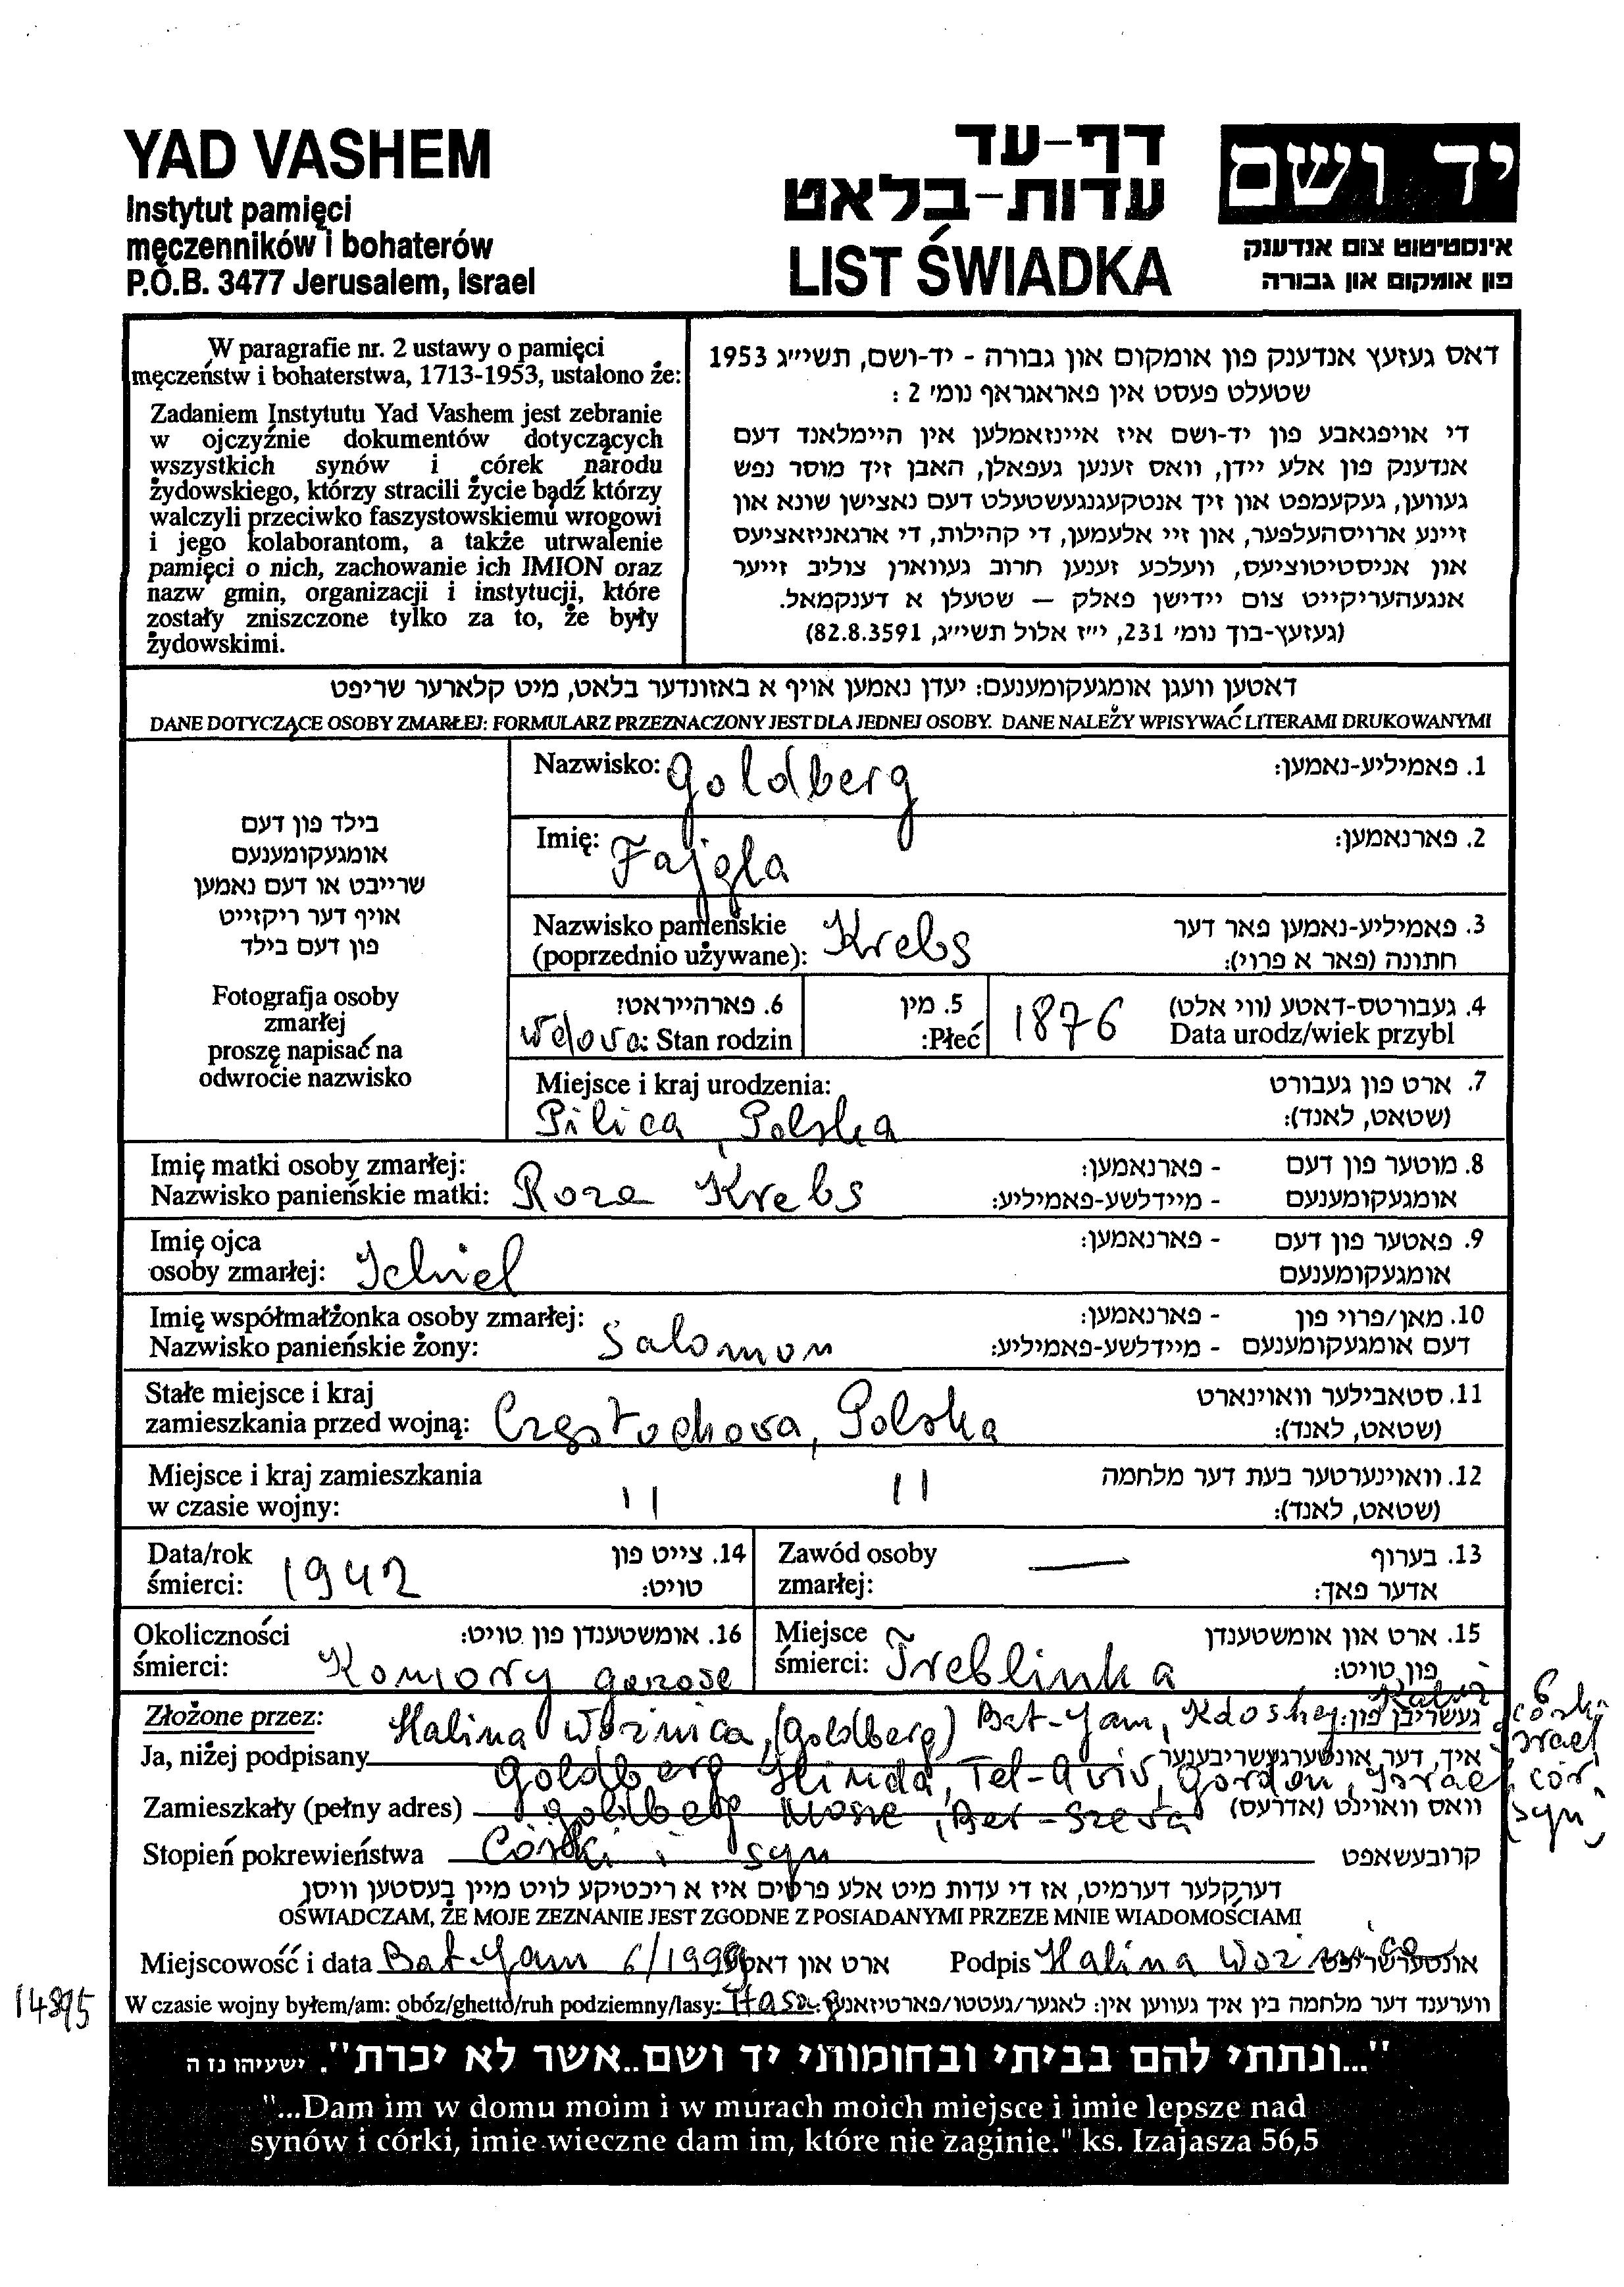 YAD VASHEM
Instytut pamięci
męczenników i bohaterów
P.O.B. 3477 Jerusalem, Israel
דף-עד
עדות-בלאט
LIST ŚWIADKA
יד ושם
אינסטיטוט צום אנדענק
פון אומקום און גבורה
W paragrafie nr. 2 ustawy o pamięci
męczeństw i bohaterstwa, 1713-1953, ustalono że:
Zadaniem Instytutu Yad Vashem jest zebranie
w ojczyźnie dokumentów dotyczących
wszystkich synów i córek narodu
żydowskiego, którzy stracili życie bądź którzy
walczyli przeciwko faszystowskiemu wrogowi
i jego kolaborantom, a także utrwalenie
pamięci o nich, zachowanie ich IMION oraz
nazw gmin, organizacji i instytucji, które
zostały zniszczone tylko za to, że były
żydowskimi.
דאס געזעץ אנדענק פון אומקום און גבורה - יד-ושם, תשי״ג 1953
שטעלט פעסט אין פאראגראף נומ׳ 2 :
די אויפגאבע פון יד-ושם איז איינזאמלען אין היימלאנד דעם
אנדענק פון אלע יידן, וואס זענען געפאלן, האבן זיך מוסר נפש
געווען, געקעמפט און זיך אנטקעגנגעשטעלט דעם נאצישן שונא און
זיינע ארויסהעלפער, און זיי אלעמען, די קהילות, די ארגאניזאציעס
און אניסטיטוציעס, וועלכע זענען חרוב געווארן צוליב זייער
אנגעהעריקייט צום יידישן פאלק – שטעלן א דענקמאל.
(געזעץ-בוך נומ׳ 231, י״ז אלול תשי״ג, 82.8.3591)
דאטען וועגן אומגעקומענעם: יעדן נאמען אויף א באזונדער בלאט, מיט קלארער שריפט
DANE DOTYCZĄCE OSOBY ZMARŁEJ: FORMULARZ PRZEZNACZONY JEST DLA JEDNEJ OSOBY. DANE NALEŻY WPISYWAĆ LITERAMI DRUKOWANYMI
בילד פון דעם
אומגעקומענעם
שרייבט או דעם נאמען
אויף דער ריקזייט
פון דעם בילד
Fotografja osoby
zmarłej
proszę napisać na
odwrocie nazwisko
Nazwisko: Goldberg 1. פאמיליע-נאמען:
Imię: Fajgla 2. פארנאמען:
Nazwisko panieńskie 3. פאמיליע-נאמען פאר דער
(poprzednio używane): Krebs חתונה (פאר א פרוי):
6. פארהייראט? 5. מין 4. געבורטס-דאטע (ווי אלט)
Wdowa: Stan rodzin :Płeć 1876 Data urodz/wiek przybl
Miejsce i kraj urodzenia: 7. ארט פון געבורט
Pilica, Polska (שטאט, לאנד):
Imię matki osoby zmarłej: - פארנאמען: 8. מוטער פון דעם
Nazwisko panieńskie matki: Roza Krebs - מיידלשע-פאמיליע: אומגעקומענעם
Imię ojca - פארנאמען: 9. פאטער פון דעם
osoby zmarłej: Ichiel אומגעקומענעם
Imię współmałżonka osoby zmarłej: - פארנאמען: 10. מאן/פרוי פון
Nazwisko panieńskie żony: Salomon - מיידלשע-פאמיליע: דעם אומגעקומענעם
Stałe miejsce i kraj 11. סטאבילער וואוינארט
zamieszkania przed wojną: Częstochowa, Polska (שטאט, לאנד):
Miejsce i kraj zamieszkania 12. וואוינערטער בעת דער מלחמה
w czasie wojny: 11 11 (שטאט, לאנד):
Data/rok 14. צייט פון Zawód osoby 13. בערוף
śmierci: 1942 טויט: zmarłej: — אדער פאך:
Okoliczności 16. אומשטענדן פון טויט: Miejsce 15. ארט און אומשטענדן
śmierci: Komory gazowe śmierci: Treblinka פון טויט:
Złożone przez: Halina Woźnica, (Goldberg) Bat-Yam, Kdoshey 6 געשריבן פון:
Ja, niżej podpisany Goldberg Hlinda, Tel-Aviv, Gordon, Israel איך, דער אונטערגעשריבענער
Zamieszkały (pełny adres) Goldberg Mosze, Ber-Szeva (syn) וואס וואוינט (אדרעס)
Stopień pokrewieństwa Córki i syn קרובעשאפט
דערקלער דערמיט, אז די עדות מיט אלע פרטים איז א ריכטיקע לויט מיין בעסטען וויסן
OŚWIADCZAM, ŻE MOJE ZEZNANIE JEST ZGODNE Z POSIADANYMI PRZEZE MNIE WIADOMOŚCIAMI
Miejscowość i data Bat-Yam 6/1999 ארט און דאטע Podpis Halina Woźnica אונטערשריפט
14895
W czasie wojny byłem/am: obóz/ghetto/ruh podziemny/lasy: Hasag ווערענד דער מלחמה בין איך געווען אין: לאגער/געטטו/פארטיזאנען:
"...ונתתי להם בביתי ובחומותי יד ושם..אשר לא יכרת". ישעיהו נז ה
"...Dam im w domu moim i w murach moich miejsce i imie lepsze nad
synów i córki, imie wieczne dam im, które nie zaginie." ks. Izajasza 56,5